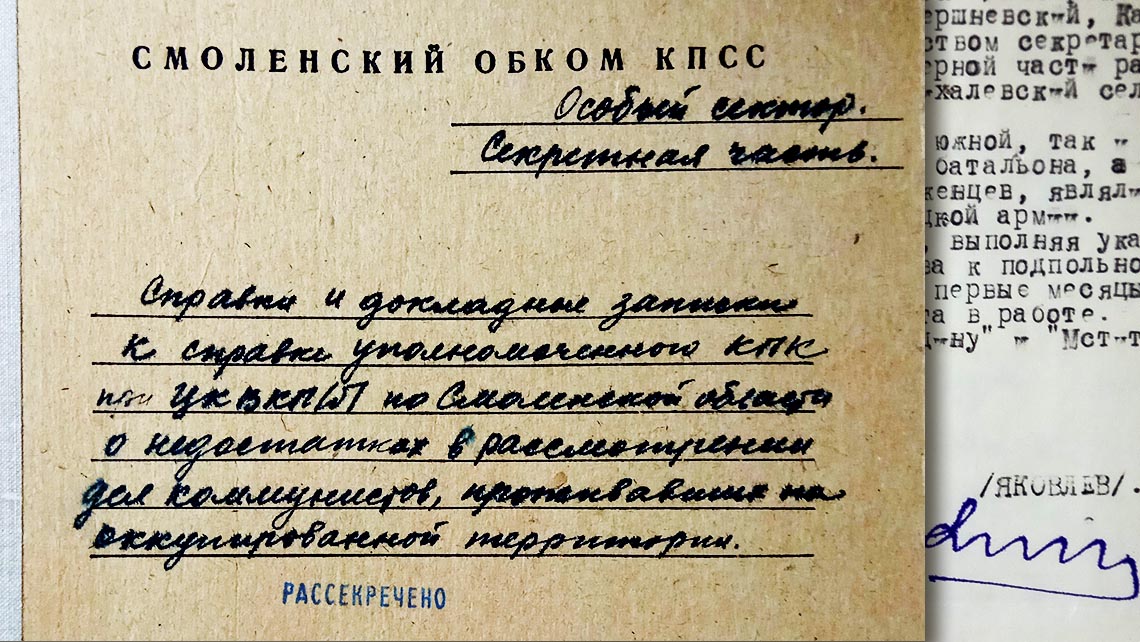 СМОЛЕНСКИЙ ОБКОМ КПСС
Особый сектор.
Секретная часть.
Справки и докладные записки
к справке уполномоченного КПК
при ЦК ВКП(б) по Смоленской области
о недостатках в рассмотрении
дел коммунистов, проживавших на
оккупированной территории.
РАССЕКРЕЧЕНО
ершневский, Ка
ством секретар
ерной части ра
халевский сел
южной, так и
батальона, а
женцев, являл
цкой армии.
, выполняя ука
ва к подпольно
первые месяцы
та в работе.
дину" и "Мстит
/ЯКОВЛЕВ/.